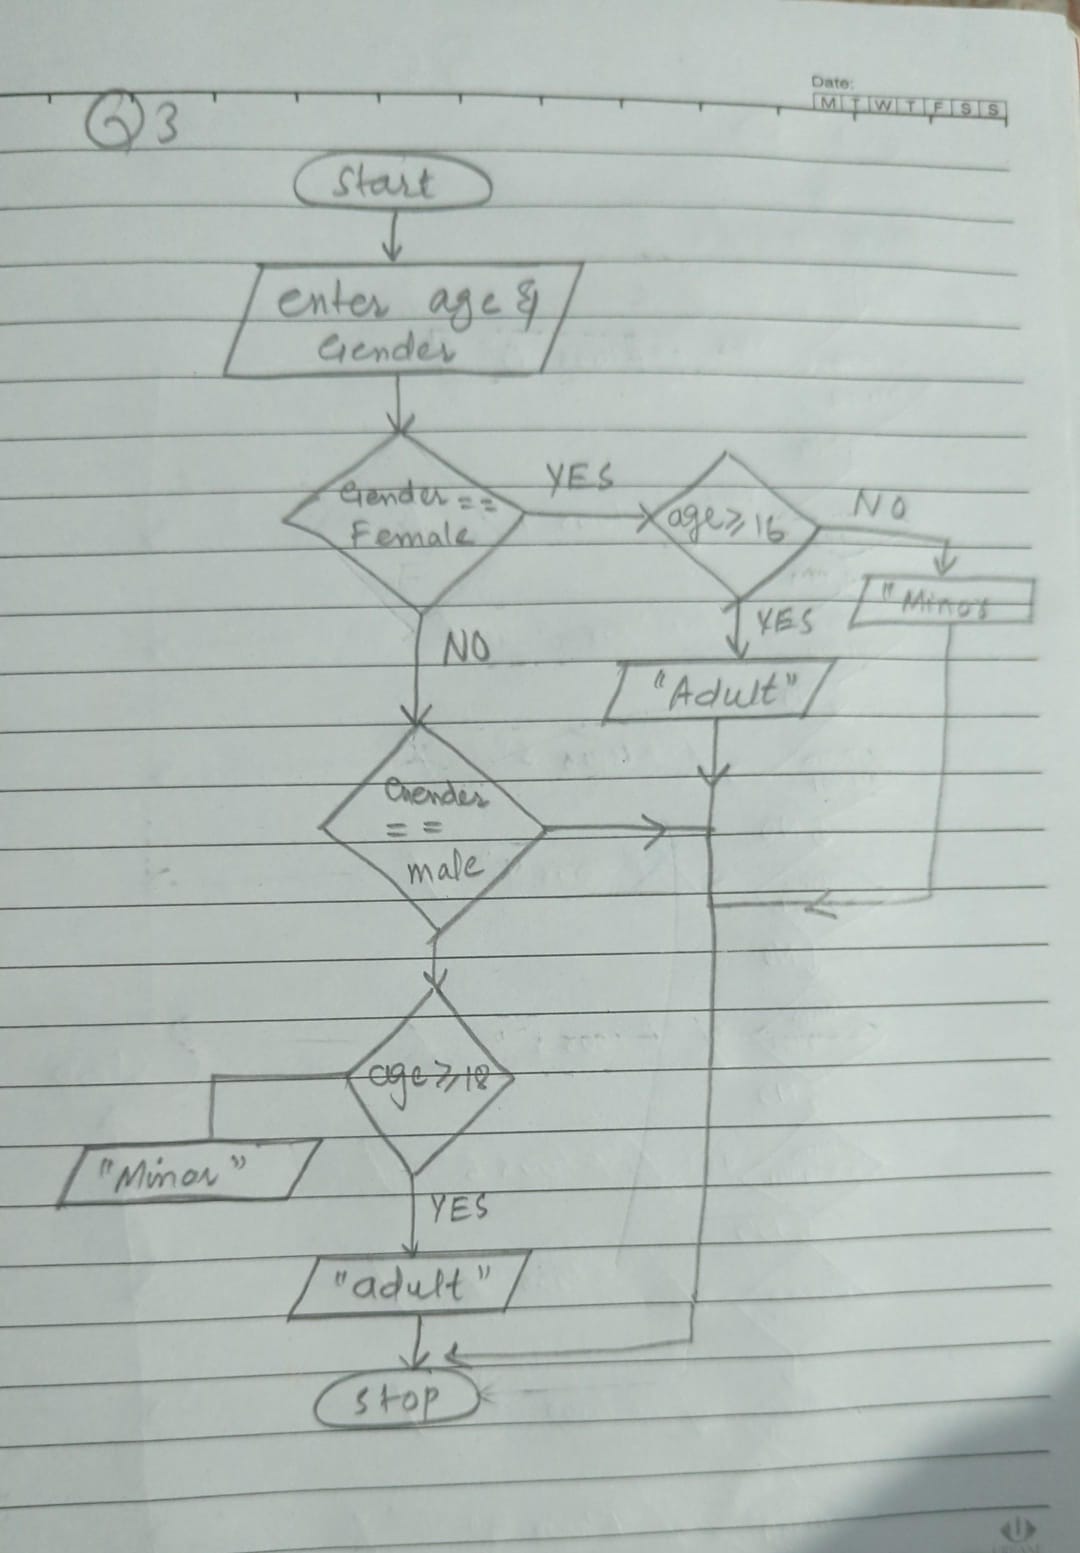 Date:
M T W T F S S
Q3
Start
enter age &
Gender
Gender ==
Female
YES
age ≥ 16
NO
"Minor
YES
"Adult"
NO
Gender
==
male
age ≥ 18
"Minor"
YES
"adult"
stop